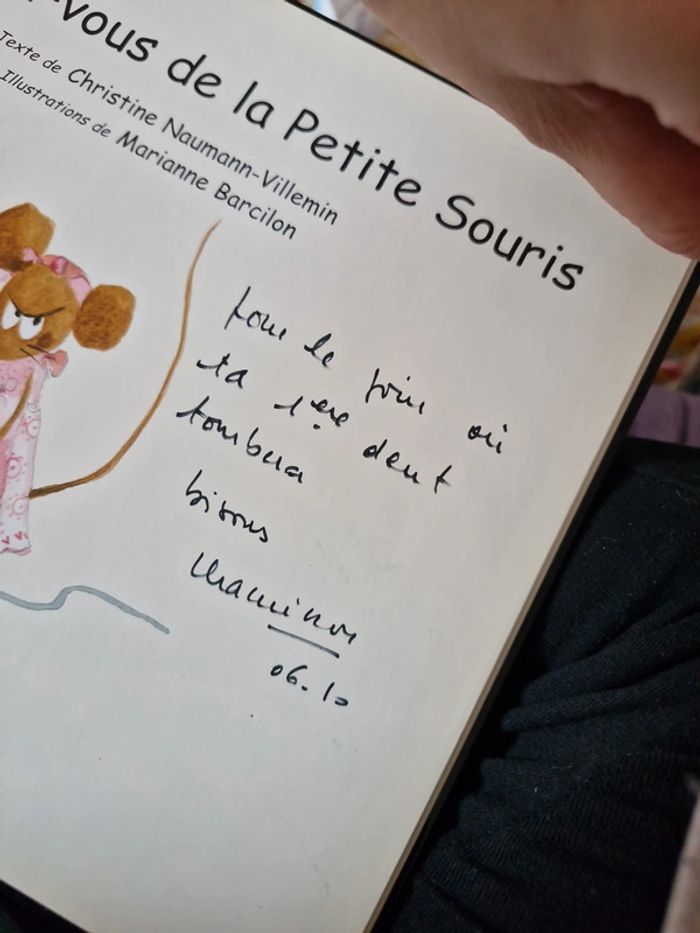 -vous de la Petite Souris
Texte de Christine Naumann-Villemin
Illustrations de Marianne Barcilon
pour le jour où
ta 1ere dent
tombera
bisous
06.10